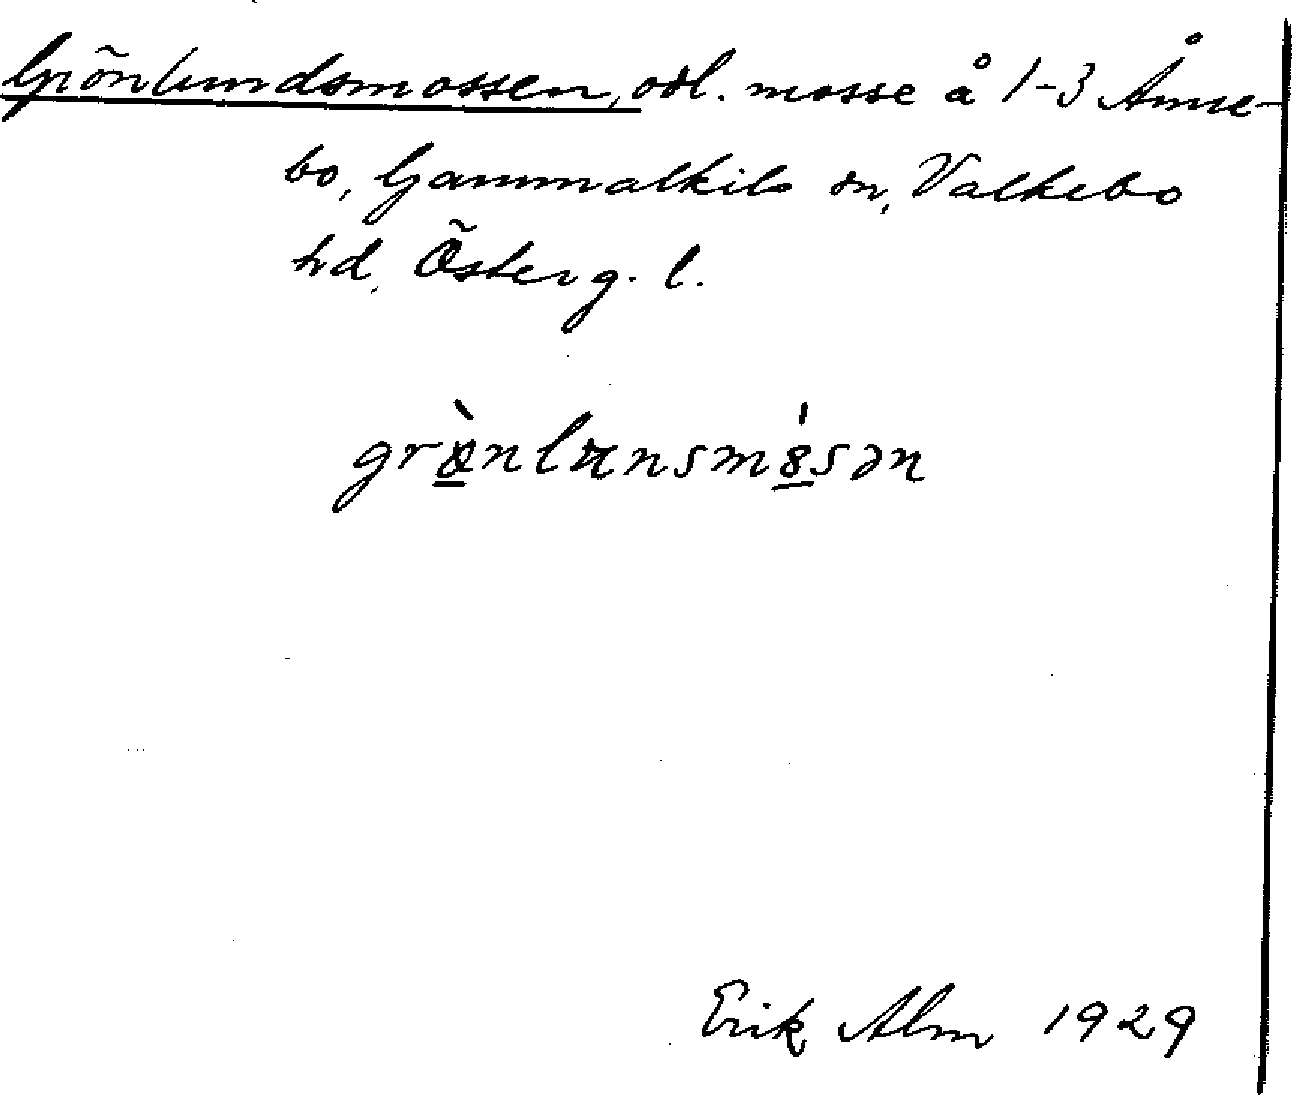 Grönlundsmossen, odl. mosse å 1-3 Åmne-
bo, Gammalkils sn, Valkebo
hd, Österg. l.
grö̀nlunsmósən
Erik Alm 1929